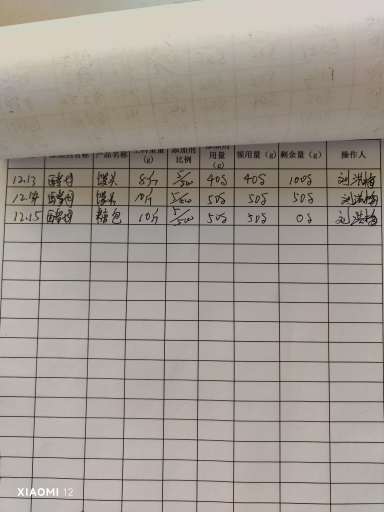 添加剂名称 产品名称 主料重量(g) 添加剂比例 添加剂用量(g) 领用量(g) 剩余量(g) 操作人
12.13 酵母 馒头 8斤 5/500 40g 40g 100g 刘洪梅
12.14 酵母 馒头 10斤 5/500 50g 50g 50g 刘洪梅
12.15 酵母 糖包 10斤 5/500 50g 50g 0g 刘洪梅
XIAOMI 12